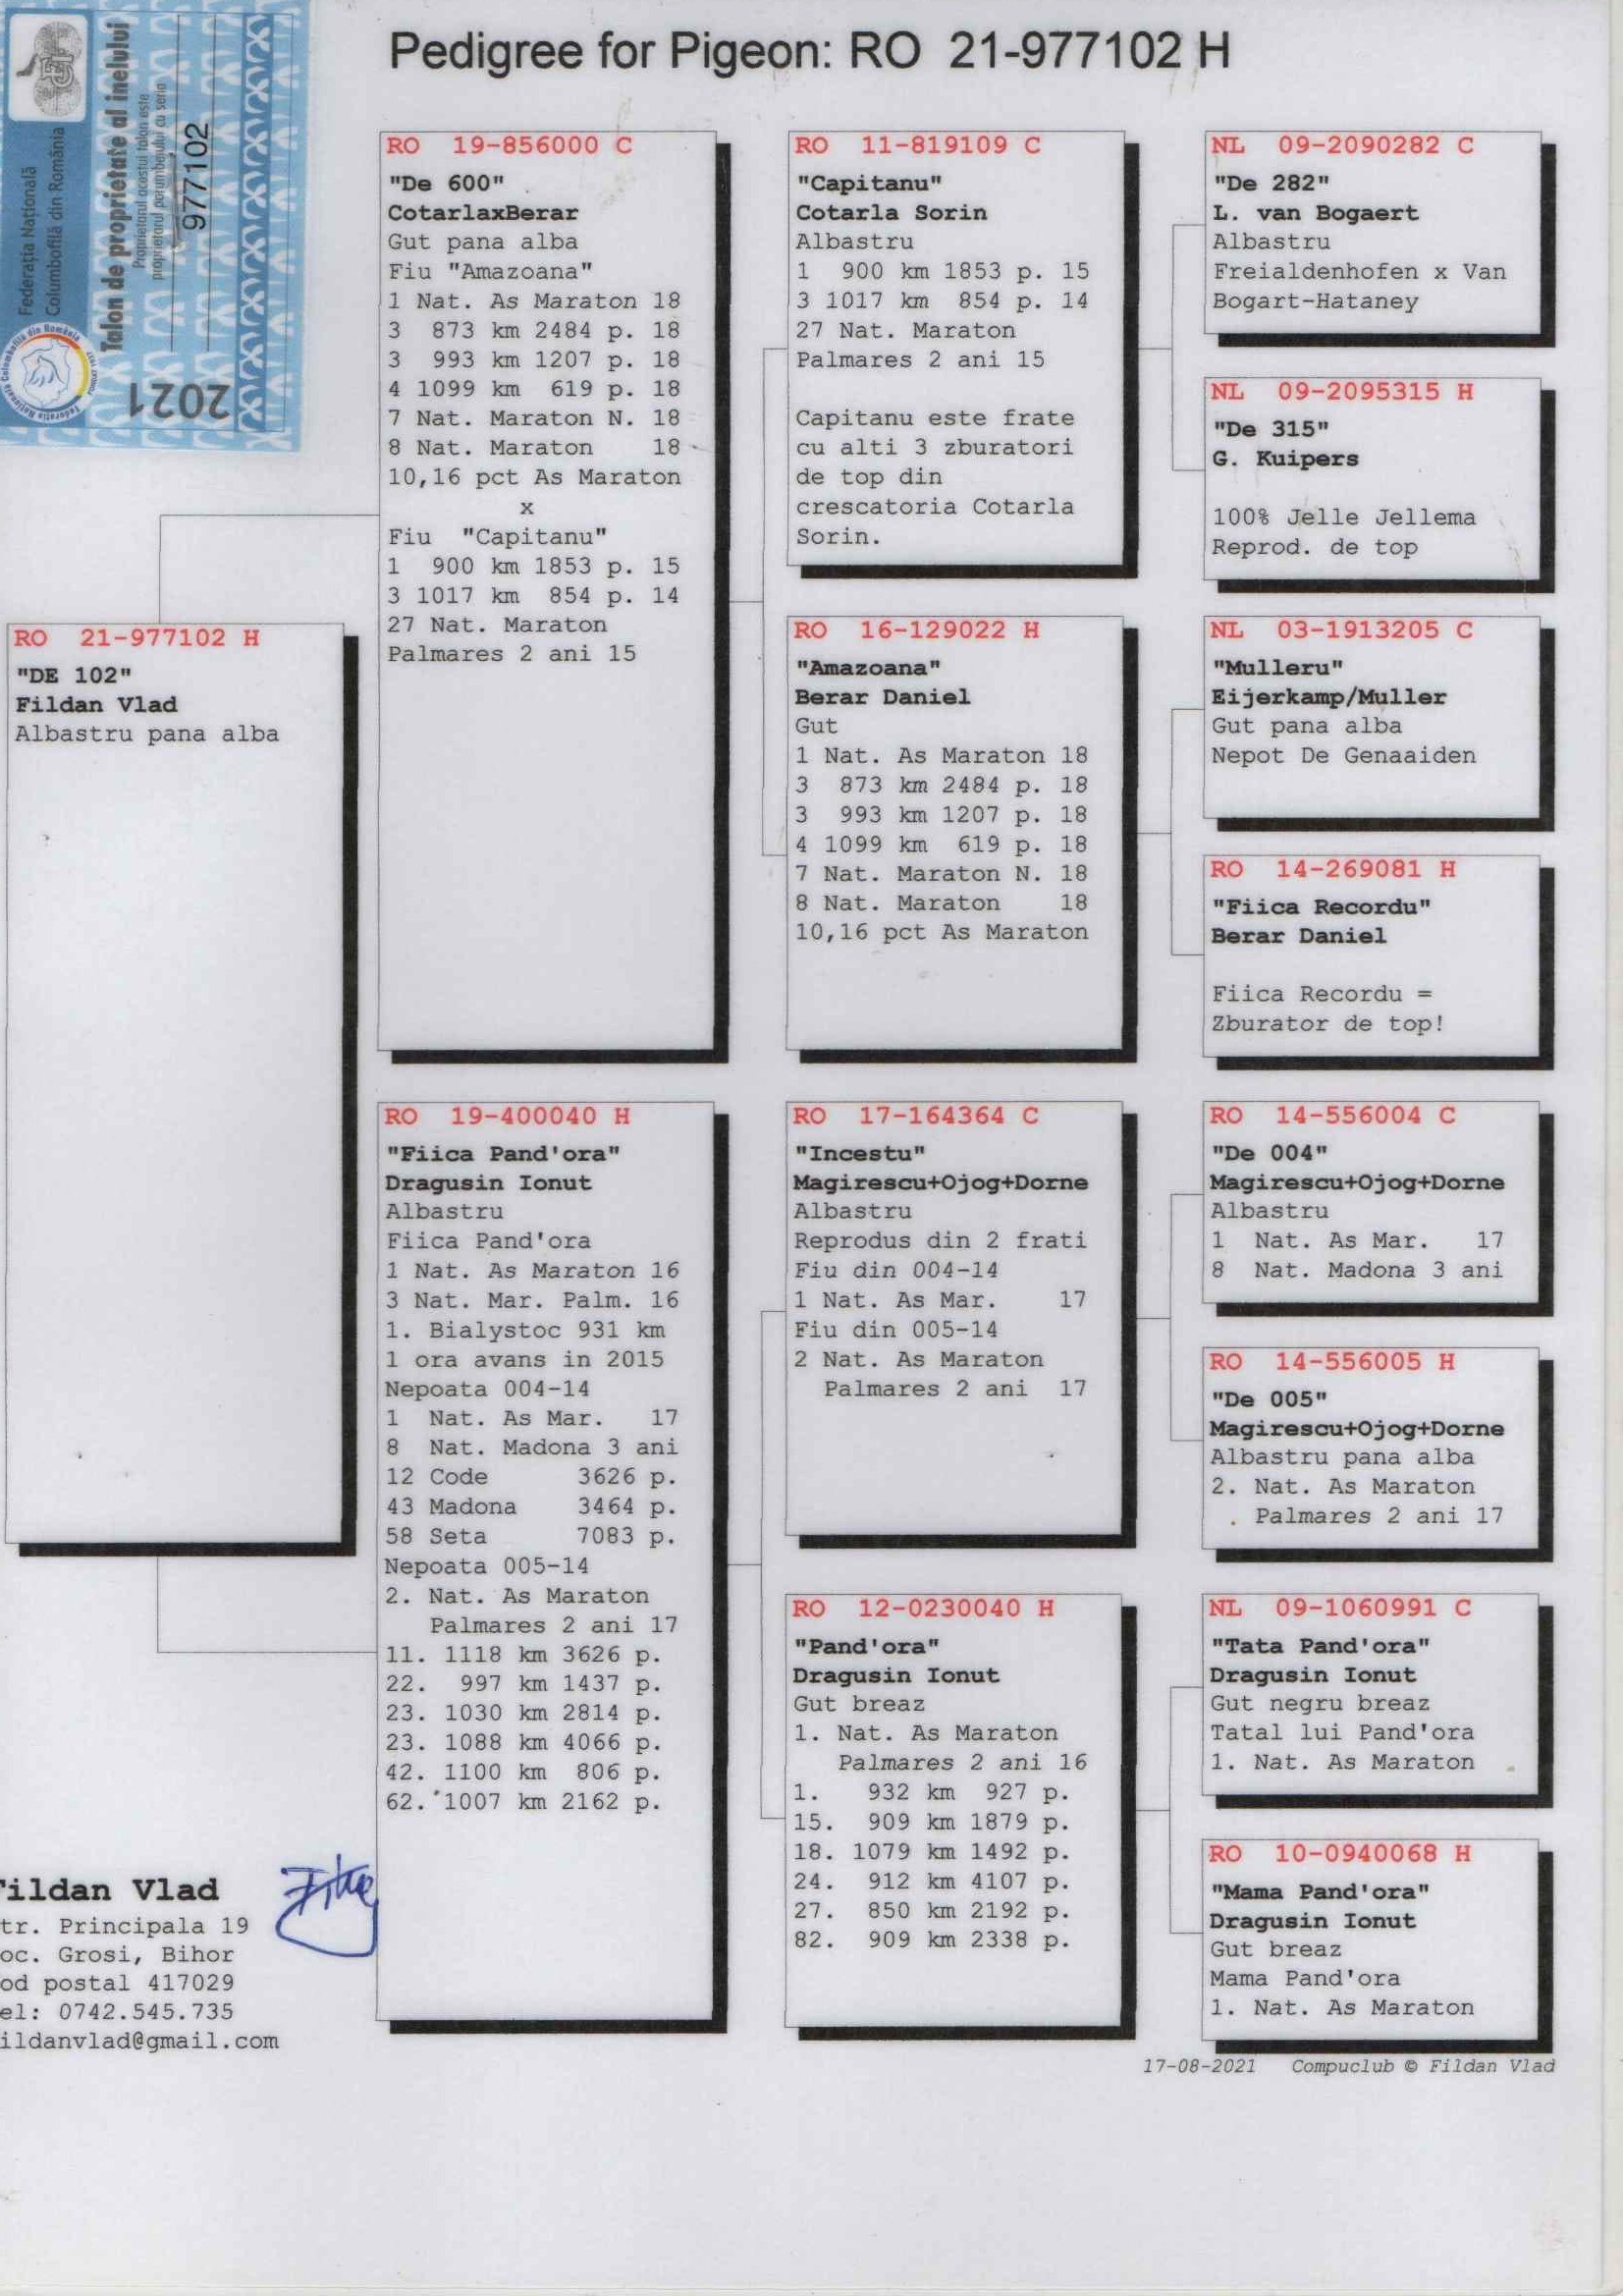 Pedigree for Pigeon: RO 21-977102 H
Federația Națională
Columbofilă din România
Talon de proprietate al inelului
Proprietarul acestui talon este
proprietarul porumbelului cu seria
977102
2021
RO 21-977102 H
"DE 102"
Fildan Vlad
Albastru pana alba
RO 19-856000 C
"De 600"
CotarlaxBerar
Gut pana alba
Fiu "Amazoana"
1 Nat. As Maraton 18
3 873 km 2484 p. 18
3 993 km 1207 p. 18
4 1099 km 619 p. 18
7 Nat. Maraton N. 18
8 Nat. Maraton 18
10,16 pct As Maraton
x
Fiu "Capitanu"
1 900 km 1853 p. 15
3 1017 km 854 p. 14
27 Nat. Maraton
Palmares 2 ani 15
RO 19-400040 H
"Fiica Pand'ora"
Dragusin Ionut
Albastru
Fiica Pand'ora
1 Nat. As Maraton 16
3 Nat. Mar. Palm. 16
1. Bialystoc 931 km
1 ora avans in 2015
Nepoata 004-14
1 Nat. As Mar. 17
8 Nat. Madona 3 ani
12 Code 3626 p.
43 Madona 3464 p.
58 Seta 7083 p.
Nepoata 005-14
2. Nat. As Maraton
Palmares 2 ani 17
11. 1118 km 3626 p.
22. 997 km 1437 p.
23. 1030 km 2814 p.
23. 1088 km 4066 p.
42. 1100 km 806 p.
62. 1007 km 2162 p.
RO 11-819109 C
"Capitanu"
Cotarla Sorin
Albastru
1 900 km 1853 p. 15
3 1017 km 854 p. 14
27 Nat. Maraton
Palmares 2 ani 15
Capitanu este frate
cu alti 3 zburatori
de top din
crescatoria Cotarla
Sorin.
RO 16-129022 H
"Amazoana"
Berar Daniel
Gut
1 Nat. As Maraton 18
3 873 km 2484 p. 18
3 993 km 1207 p. 18
4 1099 km 619 p. 18
7 Nat. Maraton N. 18
8 Nat. Maraton 18
10,16 pct As Maraton
RO 17-164364 C
"Incestu"
Magirescu+Ojog+Dorne
Albastru
Reprodus din 2 frati
Fiu din 004-14
1 Nat. As Mar. 17
Fiu din 005-14
2 Nat. As Maraton
Palmares 2 ani 17
RO 12-0230040 H
"Pand'ora"
Dragusin Ionut
Gut breaz
1. Nat. As Maraton
Palmares 2 ani 16
1. 932 km 927 p.
15. 909 km 1879 p.
18. 1079 km 1492 p.
24. 912 km 4107 p.
27. 850 km 2192 p.
82. 909 km 2338 p.
NL 09-2090282 C
"De 282"
L. van Bogaert
Albastru
Freialdenhofen x Van
Bogart-Hataney
NL 09-2095315 H
"De 315"
G. Kuipers
100% Jelle Jellema
Reprod. de top
NL 03-1913205 C
"Mulleru"
Eijerkamp/Muller
Gut pana alba
Nepot De Genaaiden
RO 14-269081 H
"Fiica Recordu"
Berar Daniel
Fiica Recordu =
Zburator de top!
RO 14-556004 C
"De 004"
Magirescu+Ojog+Dorne
Albastru
1 Nat. As Mar. 17
8 Nat. Madona 3 ani
RO 14-556005 H
"De 005"
Magirescu+Ojog+Dorne
Albastru pana alba
2. Nat. As Maraton
Palmares 2 ani 17
NL 09-1060991 C
"Tata Pand'ora"
Dragusin Ionut
Gut negru breaz
Tatal lui Pand'ora
1. Nat. As Maraton
RO 10-0940068 H
"Mama Pand'ora"
Dragusin Ionut
Gut breaz
Mama Pand'ora
1. Nat. As Maraton
ildan Vlad
tr. Principala 19
oc. Grosi, Bihor
od postal 417029
el: 0742.545.735
ildanvlad@gmail.com
17-08-2021 Compuclub © Fildan Vlad